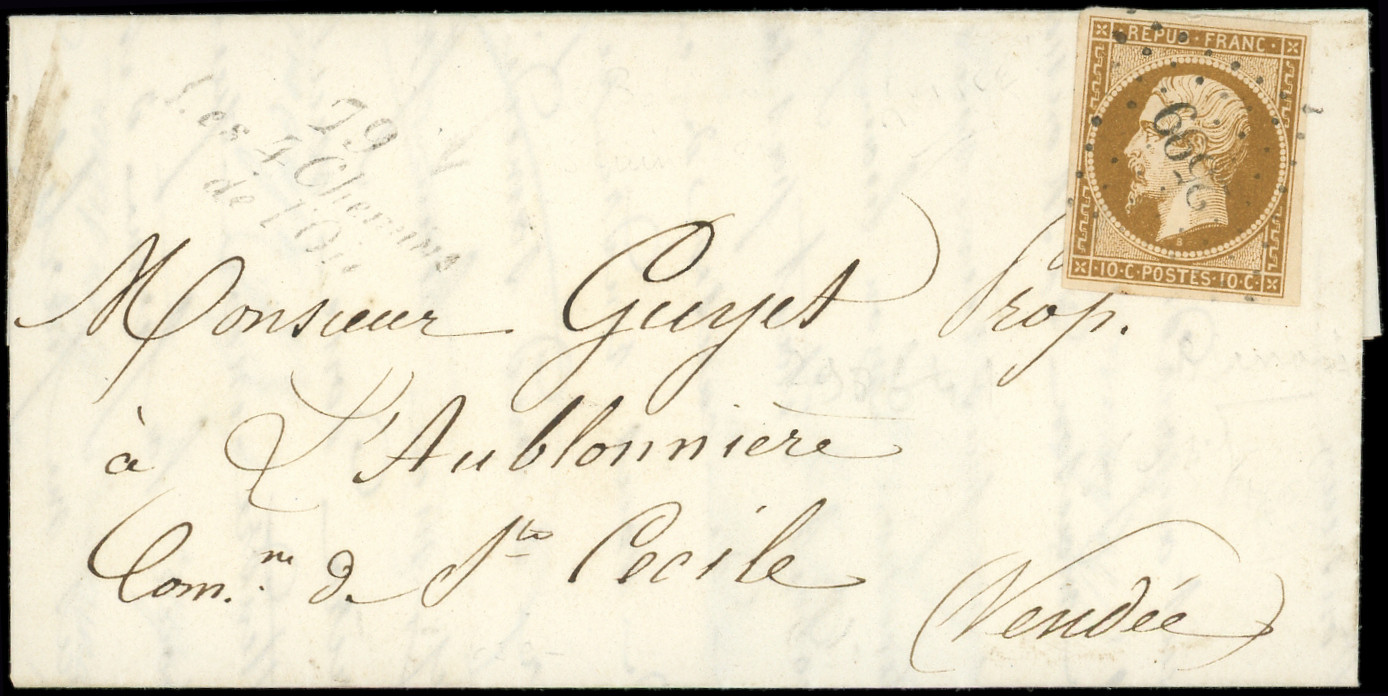 79
Les 4 Chemins
de l'Oie
REPUB · FRANC ·
B
· 10 · C · POSTES · 10 · C ·
Monsieur Guyet Prop.
à L'Aublonnière
Com.ne de Ste Cecile
(Vendée)